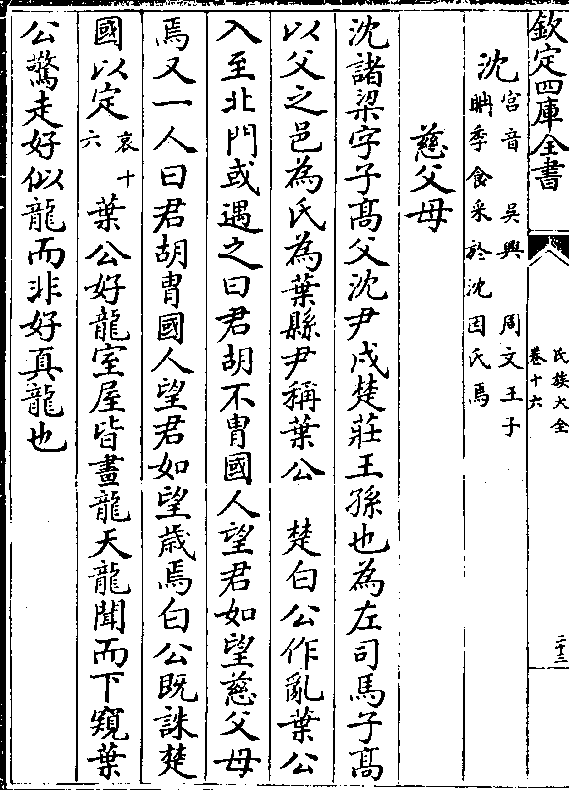 欽定四庫全書
氏族大全
卷十六
二十三
沈宮音 吳興 周文王子
聃季食采於沈因氏焉
慈父母
沈諸梁字子髙父沈尹戌楚莊王孫也為左司馬子髙
以父之邑為氏為葉縣尹稱葉公 楚白公作亂葉公
入至北門或遇之曰君胡不胄國人望君如望慈父母
焉又一人曰君胡胄國人望君如望歳焉白公既誅楚
國以定哀十六 葉公好龍室屋皆畫龍天龍聞而下窺葉
公驚走好似龍而非好真龍也